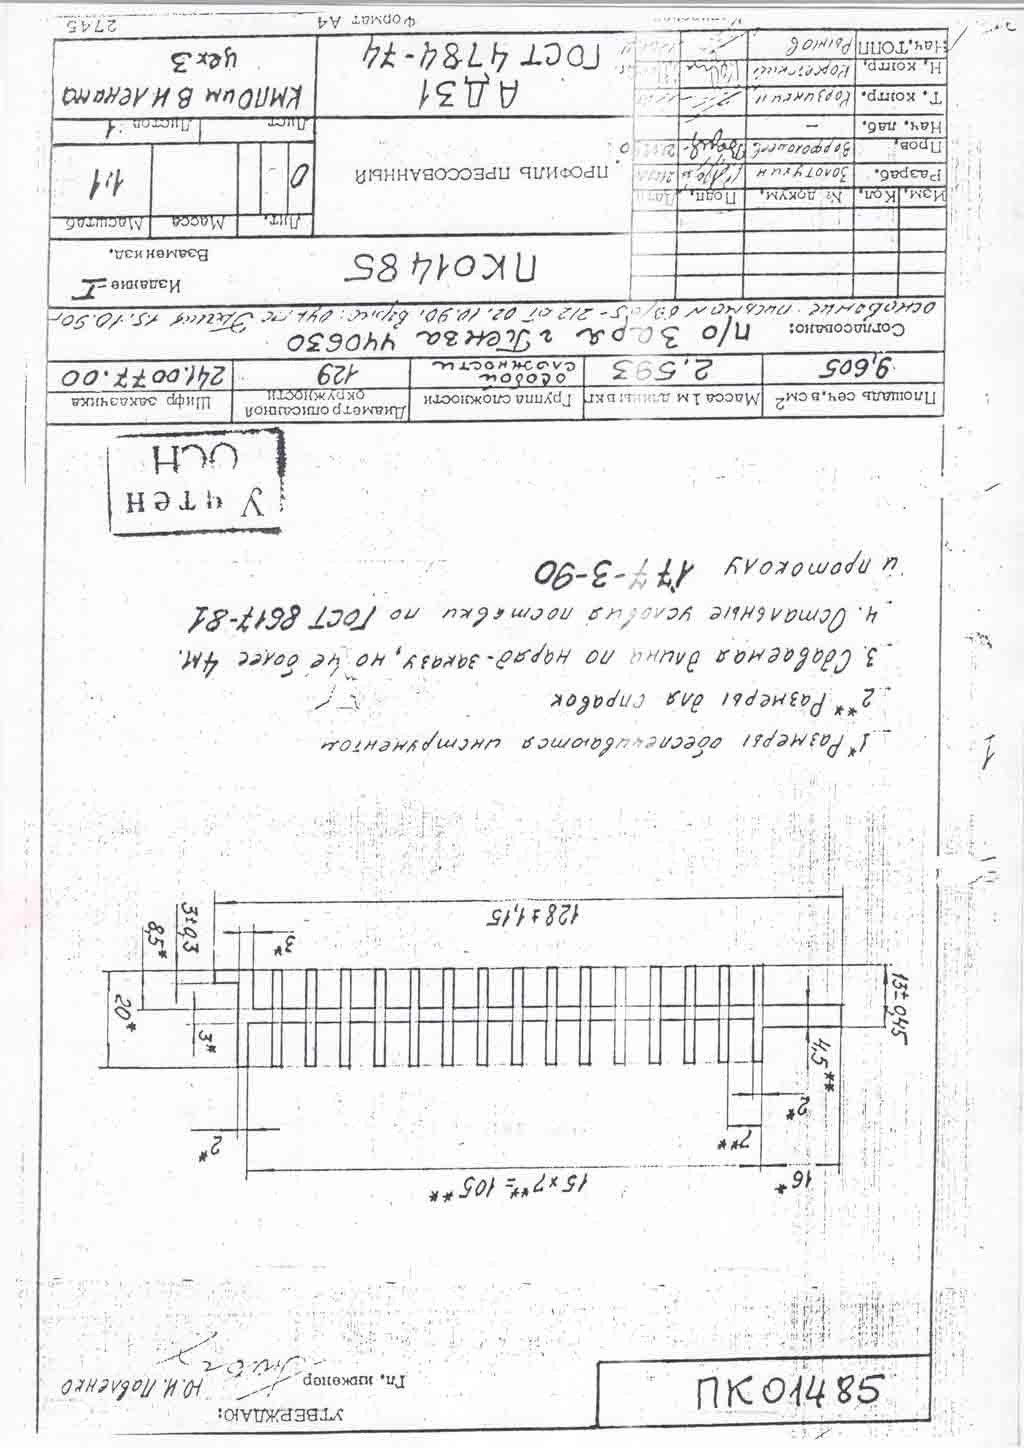 ПК01485
УТВЕРЖДАЮ:
Гл. инженер Ю.И. Павленко
16*
15×7**=105**
7**
2*
2*
4,5**
3*
20*
13±0,45
3*
8,5*
3±0,3
128±1,15
1* Размеры обеспечиваются инструментом
2** Размеры для справок
3. Сдаваемая длина по наряд-заказу, но не более 4м.
4. Остальные условия поставки по ГОСТ 8617-81
и протоколу 177-3-90
Учтен
ОСН
Площадь сеч. в см² Масса 1м длины в кг Группа сложности Диаметр описанной окружности Шифр заказчика
9,605 2,593 особой сложности 129 241.0077.00
Согласовано: п/о Заря г Пенза 440630
основание письмо N 69/0/5-212 от 02.10.90. 15.10.90г
ПК01485
Издание I
Взамен изд.
Изм. Кол. № докум. Подп. Дата
Разраб. Золотухин
Пров.
Нач. лаб. —
Т. контр. Корзинкин
Н. контр. Корецкий
Нач. ТОПП Рынов
ПРОФИЛЬ ПРЕССОВАННЫЙ
Лит. Масса Масштаб
0 1:1
Лист Листов 1
АД31
ГОСТ 4784-74
КМПО им В И Ленина
цех 3
Формат А4
2745